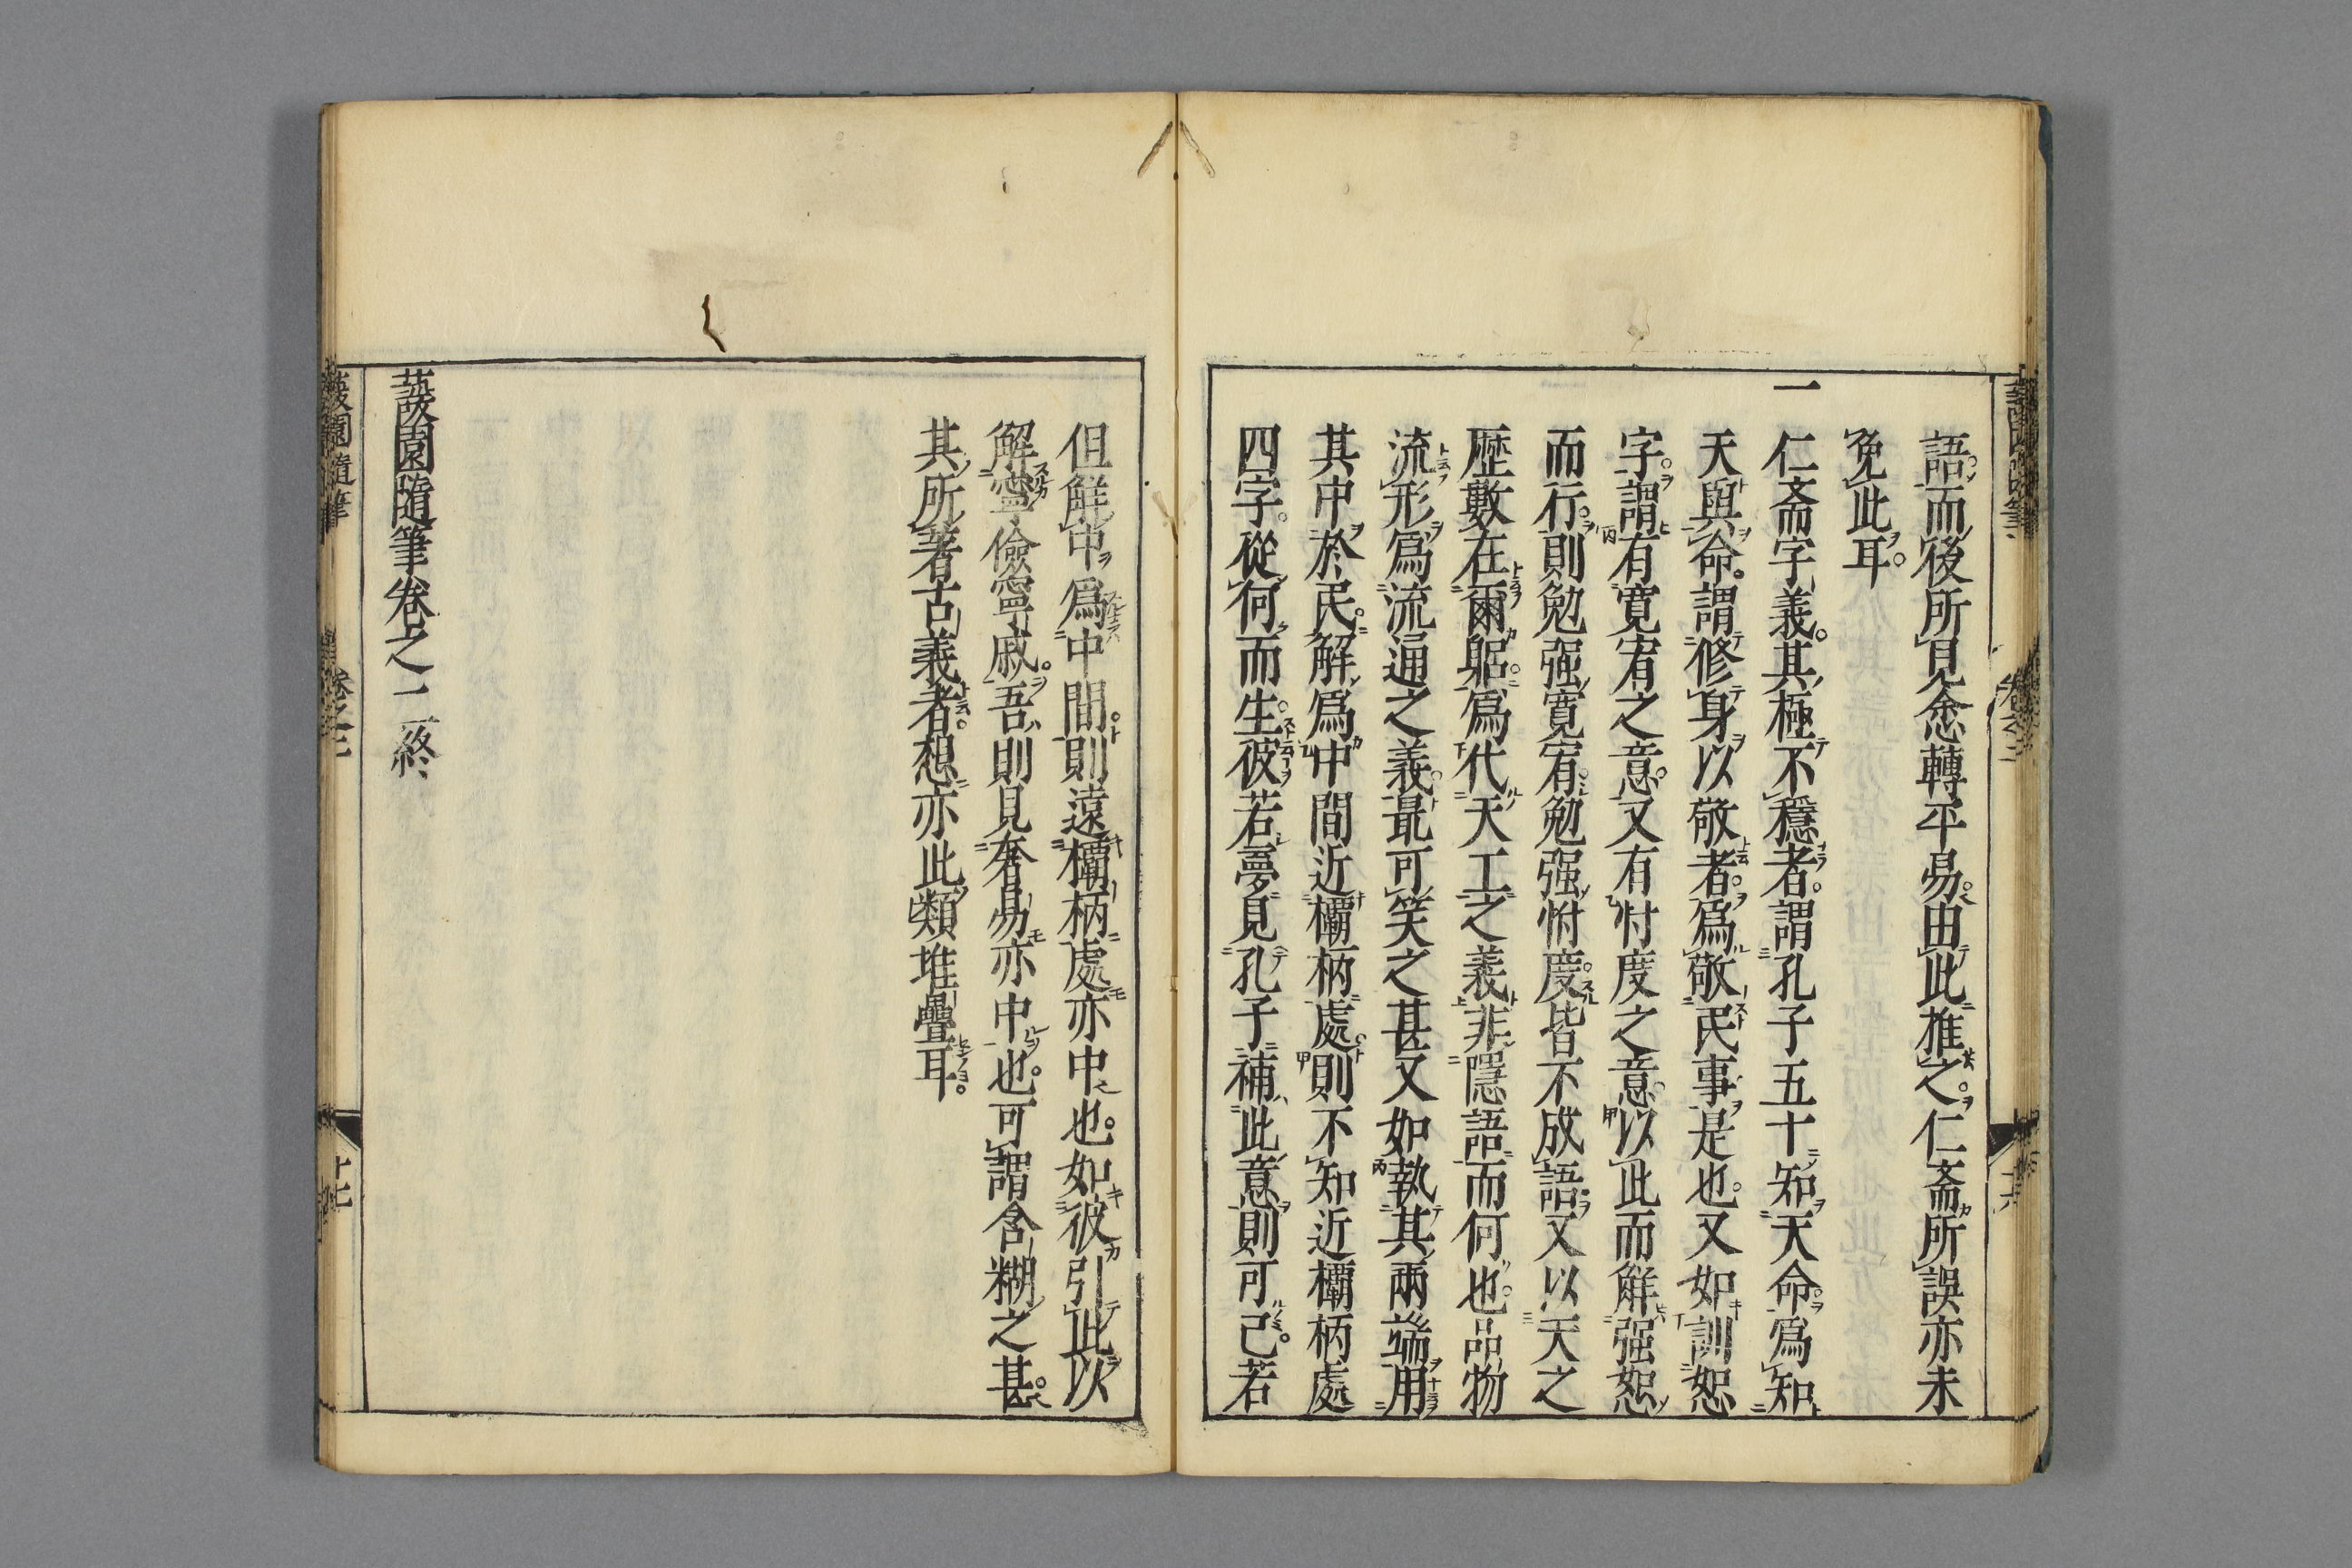 語而後所見愈轉平易由此推之仁斎所誤亦未
免此耳
一 仁斎字義其極不穩者謂孔子五十知天命爲知
天與命謂修身以敬者爲敬民事是也又如訓恕
字謂有寛宥之意又有忖度之意以此而解强恕
而行則勉强寛宥勉强忖度皆不成語又以天之
歷數在爾躬爲代天工之義非隱語而何也品物
流形爲流通之義最可笑之甚又如執其兩端用
其中於民解爲中間近欛柄處則不知近欛柄處
四字從何而生彼若夢見孔子補此意則可已若
但解中爲中間則遠欛柄處亦中也如彼引此以
解寧儉寧戚吾則見奢易亦中也可謂含糊之甚
其所著古義者想亦此類堆疊耳
蘐園隨筆卷之二終
蘐園隨筆
卷之二
十七